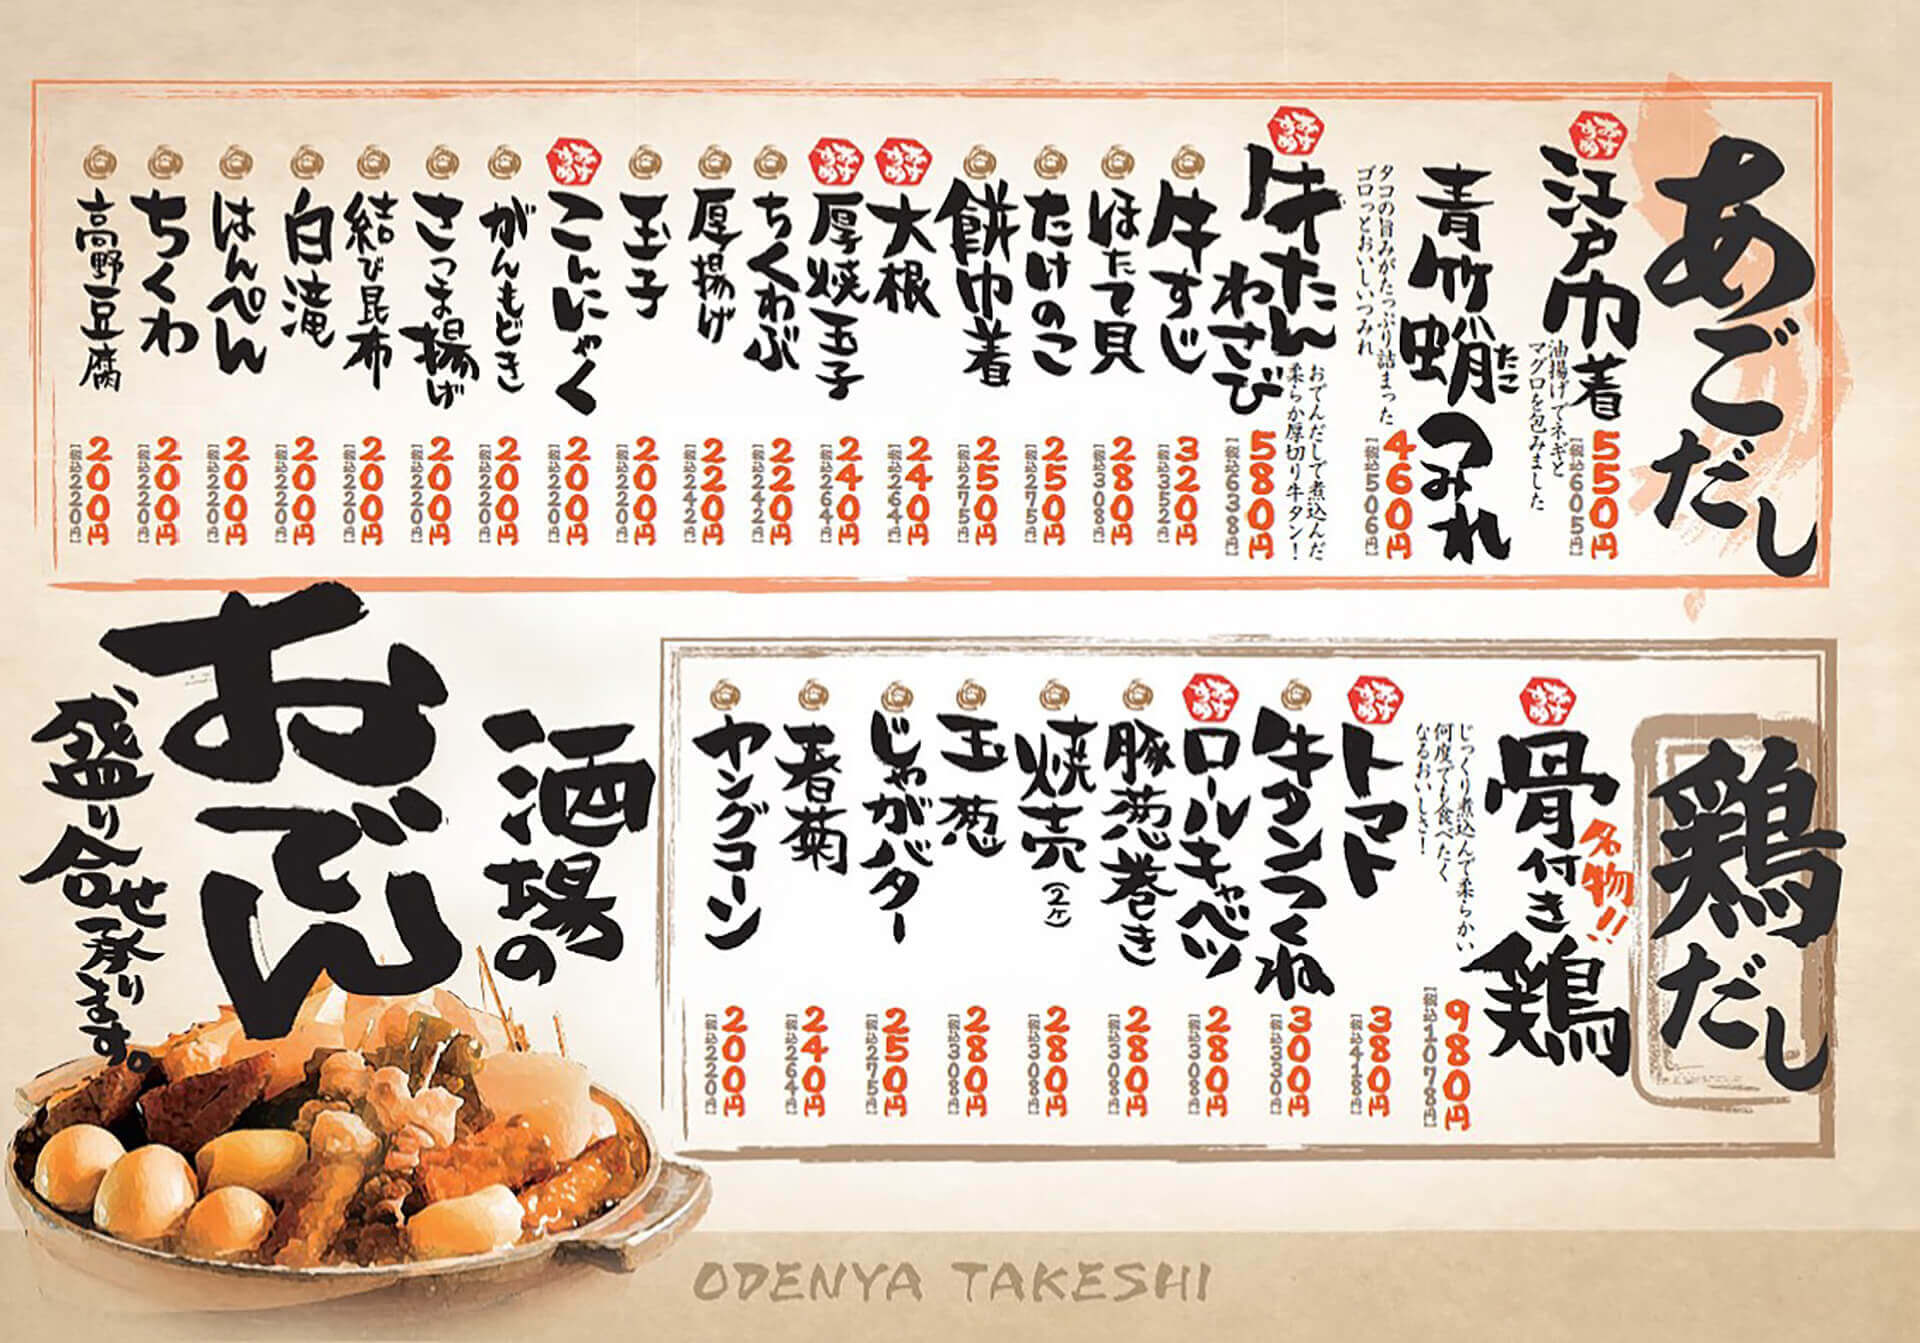 あごだし
おすすめ
江戸巾着
油揚げでネギと
マグロを包みました
550円
【税込605円】
青竹蛸つみれ
たこ
タコの旨みがたっぷり詰まった
ゴロっとおいしいつみれ
460円
【税込506円】
おすすめ
牛たんわさび
おでんだしで煮込んだ
柔らか厚切り牛タン!
580円
【税込638円】
牛すじ
320円
【税込352円】
ほたて貝
280円
【税込308円】
たけのこ
250円
【税込275円】
餅巾着
250円
【税込275円】
おすすめ
大根
240円
【税込264円】
おすすめ
厚焼玉子
240円
【税込264円】
ちくわぶ
220円
【税込242円】
厚揚げ
220円
【税込242円】
玉子
200円
【税込220円】
おすすめ
こんにゃく
200円
【税込220円】
がんもどき
200円
【税込220円】
さつま揚げ
200円
【税込220円】
結び昆布
200円
【税込220円】
白滝
200円
【税込220円】
はんぺん
200円
【税込220円】
ちくわ
200円
【税込220円】
高野豆腐
200円
【税込220円】
鶏だし
おすすめ
名物!!
骨付き鶏
じっくり煮込んで柔らかい
何度でも食べたく
なるおいしさ!
980円
【税込1078円】
おすすめ
トマト
380円
【税込418円】
牛タンつくね
300円
【税込330円】
おすすめ
ロールキャベツ
280円
【税込308円】
豚葱巻き
280円
【税込308円】
焼売(2ヶ)
280円
【税込308円】
玉葱
280円
【税込308円】
じゃがバター
250円
【税込275円】
春菊
240円
【税込264円】
ヤングコーン
200円
【税込220円】
酒場の
おでん
盛り合せ承ります。
ODENYA TAKESHI